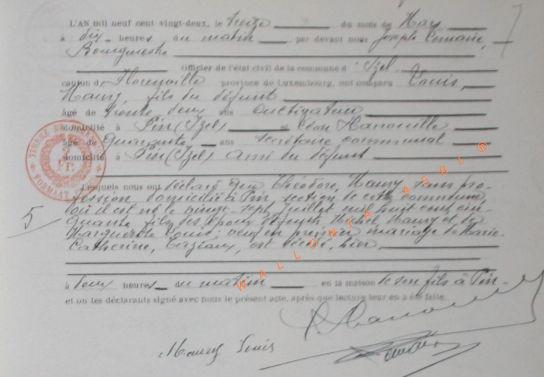 L'AN mil neuf cent vingt-deux, le treize du mois de Mars
à dix heures du matin par devant nous Joseph Lemaire,
Bourgmestre
Officier de l'état civil de la commune d'Izel
canton de Florenville province de Luxembourg, ont comparu Louis
Maury, fils du défunt
âgé de trente deux ans cultivateur
domicilié à Pin (Izel) et Léon Hanouille
âgé de quarante ans secrétaire communal
domicilié à Pin (Izel) ami du défunt
Lesquels nous ont déclaré que Théodore, Maury sans pro-
fession domicilié à Pin, section de cette commune,
où il est né le vingt-sept juillet mil huit cent cin
quante fils des époux Maury et de
Marguerite Louis; veuf en premier mariage de Marie-
Catherine, est décédé, hier
à deux heures du matin en la maison de son fils à Pin-
et ont les déclarants signé avec nous le présent acte, après que lecture leur en a été faite.
5
Maury Louis
WALLONIA ASBL ©